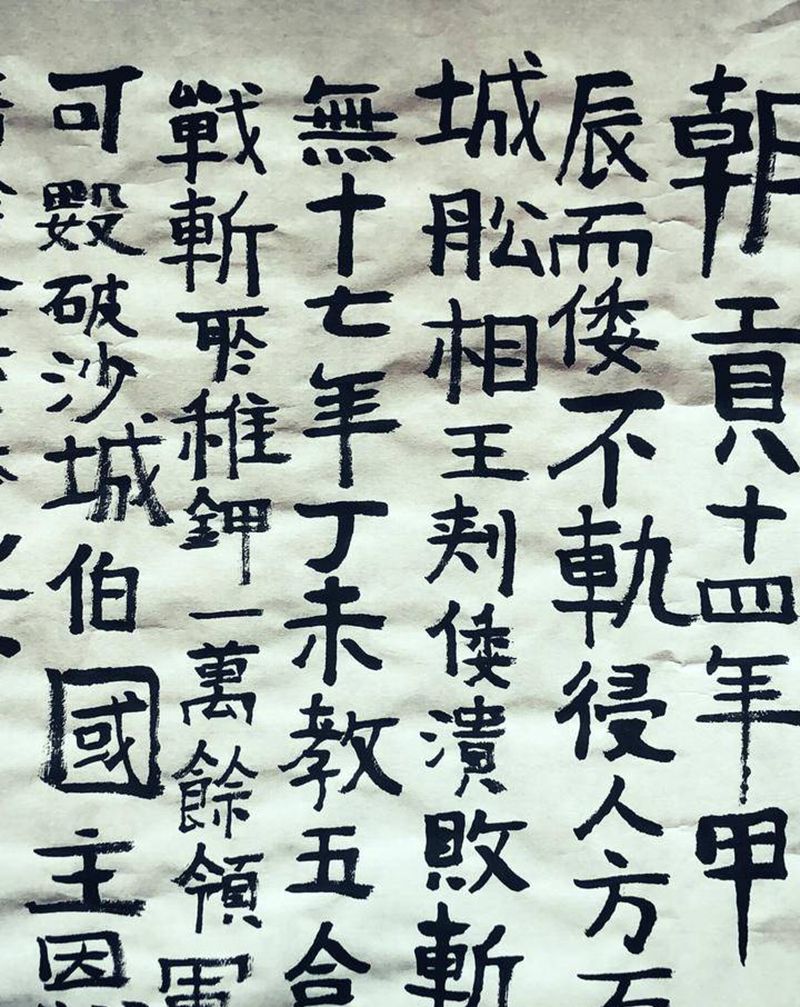 朝貢十四年甲
辰而倭不軌侵人方
城舩相王刾倭潰敗斬
無十七年丁未教五合
戰斬
稚鉀一萬餘領軍
可
破沙城
國主因